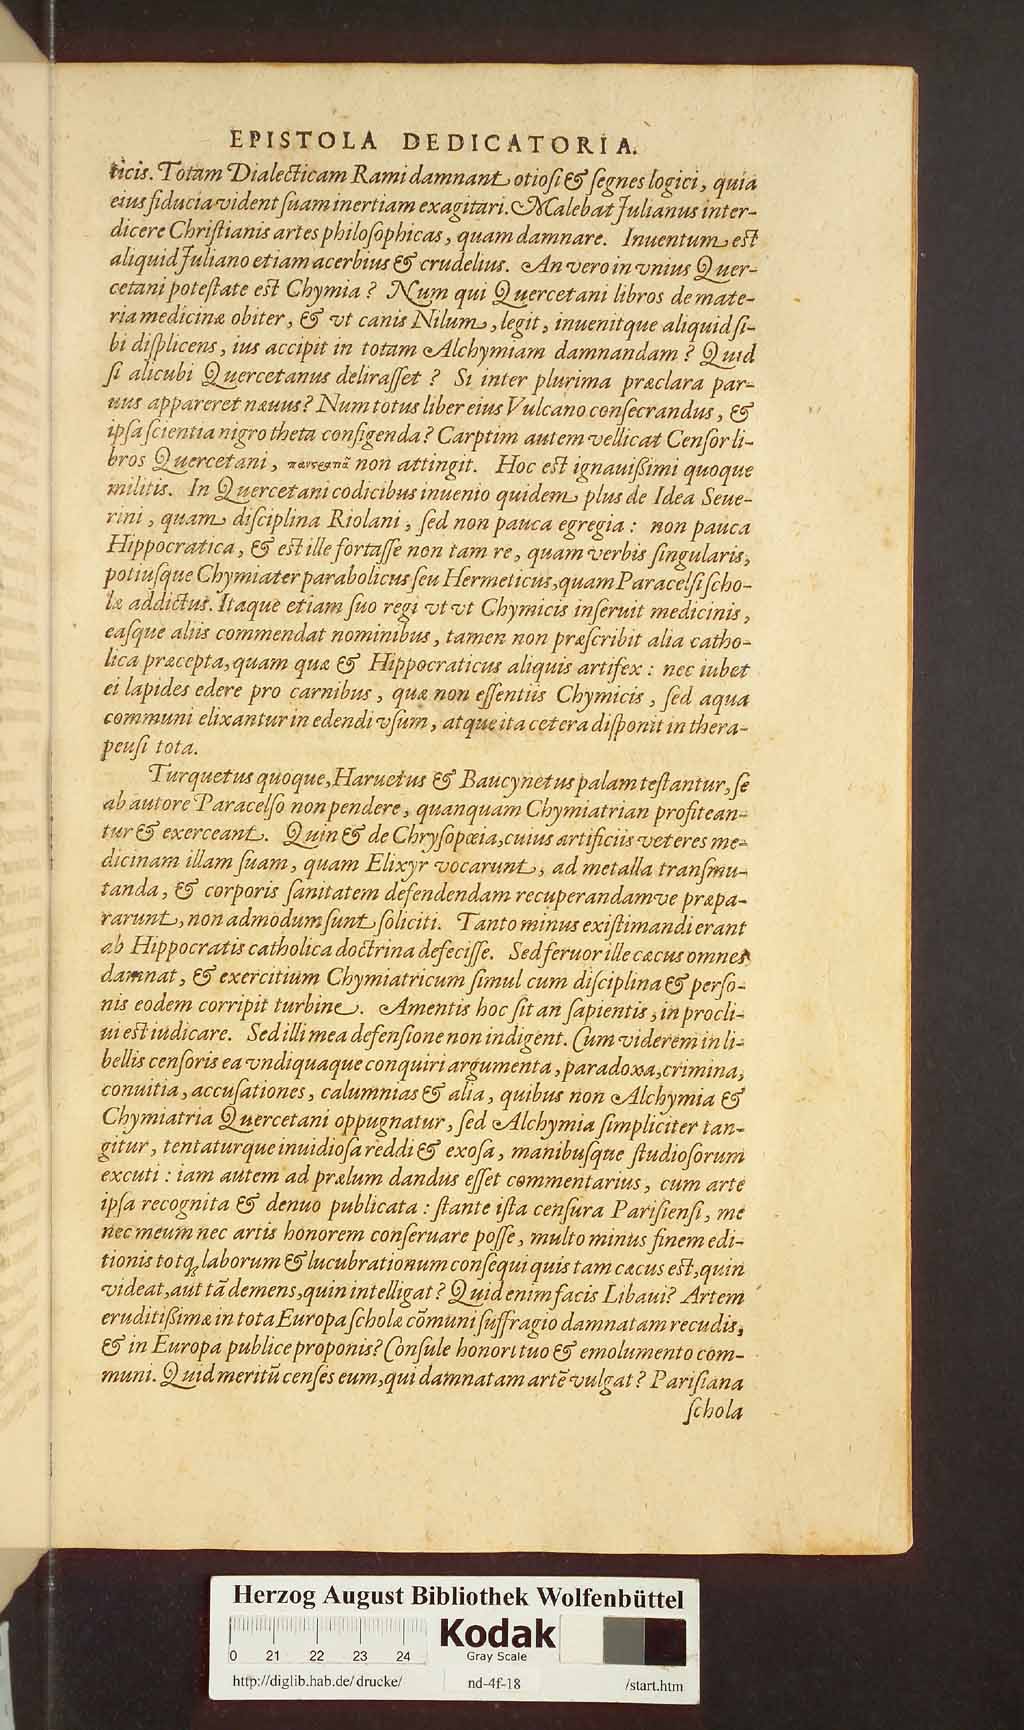 EPISTOLA DEDICATORIA.
ticis. Totam Dialecticam Rami damnant otiosi & segnes logici, quia
eius fiducia vident suam inertiam exagitari. Malebat Julianus inter-
dicere Christianis artes philosophicas, quam damnare. Inuentum est
aliquid Juliano etiam acerbius & crudelius. An vero in vnius Quer-
cetani potestate est Chymia? Num qui Quercetani libros de mate-
ria medicinæ obiter, & vt canis Nilum, legit, inuenitque aliquid si-
bi displicens, ius accipit in totam Alchymiam damnandam? Quid
si alicubi Quercetanus delirasset? Si inter plurima præclara par-
uus appareret næuus? Num totus liber eius Vulcano consecrandus, &
ipsa scientia nigro theta configenda? Carptim autem vellicat Censor li-
bros Quercetani, non attingit. Hoc est ignauißimi quoque
militis. In Quercetani codicibus inuenio quidem plus de Idea Seue-
rini, quam disciplina Riolani, sed non pauca egregia: non pauca
Hippocratica, & est ille fortasse non tam re, quam verbis singularis,
potiusque Chymiater parabolicus seu Hermeticus, quam Paracelsi scho-
læ addictus. Itaque etiam suo regi vt vt Chymicis inseruit medicinis,
easque aliis commendat nominibus, tamen non præscribit alia catho-
lica præcepta, quam quæ & Hippocraticus aliquis artifex: nec iubet
ei lapides edere pro carnibus, quæ non essentiis Chymicis, sed aqua
communi elixantur in edendi vsum, atque ita cetera disponit in thera-
peusi tota.
Turquetus quoque, Haruetus & Baucynetus palam testantur, se
ab autore Paracelso non pendere, quanquam Chymiatrian profitean-
tur & exerceant. Quin & de Chrysopœia, cuius artificiis veteres me-
dicinam illam suam, quam Elixyr vocarunt, ad metalla transmu-
tanda, & corporis sanitatem defendendam recuperandamve præpa-
rarunt, non admodum sunt soliciti. Tanto minus existimandi erant
ab Hippocratis catholica doctrina defecisse. Sed feruor ille cæcus omnes
damnat, & exercitium Chymiatricum simul cum disciplina & perso-
nis eodem corripit turbine. Amentis hoc sit an sapientis, in procli-
ui est iudicare. Sed illi mea defensione non indigent. Cum viderem in li-
bellis censoris ea vndiquaque conquiri argumenta, paradoxa, crimina,
conuitia, accusationes, calumnias & alia, quibus non Alchymia &
Chymiatria Quercetani oppugnatur, sed Alchymia simpliciter tan-
gitur, tentaturque inuidiosa reddi & exosa, manibusque studiosorum
excuti: iam autem ad prælum dandus esset commentarius, cum arte
ipsa recognita & denuo publicata: stante ista censura Parisiensi, me
nec meum nec artis honorem conseruare posse, multo minus finem edi-
tionis totq; laborum & lucubrationum consequi quis tam cæcus est, quin
videat, aut tã demens, quin intelligat? Quid enim facis Libaui? Artem
eruditißimæ in tota Europa scholæ cõmuni suffragio damnatam recudis,
& in Europa publice proponis? Consule honori tuo & emolumento com-
muni. Quid meritũ censes eum, qui damnatam artẽ vulgat? Parisiana
schola
Herzog August Bibliothek Wolfenbüttel
0 21 22 23 24
Kodak
Gray Scale
http://diglib.hab.de/drucke/ nd-4f-18 /start.htm